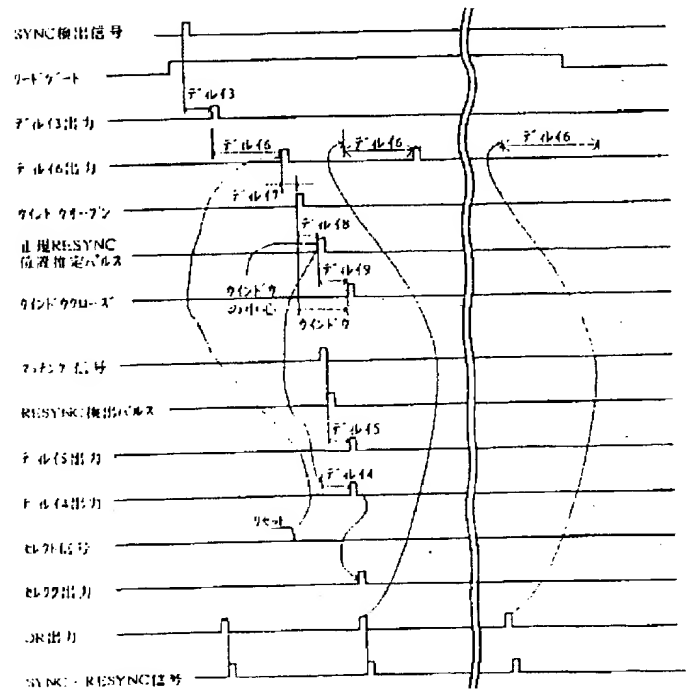 SYNC検出信号
リードゲート
ディレイ3
ディレイ3出力
ディレイ6
ディレイ6
ディレイ6
ディレイ6出力
ディレイ7
ウインドウオープン
ディレイ8
正規RESYNC
位置推定パルス
ディレイ9
ウインドウ
の中心
ウインドウクローズ
ウインドウ
マッチング信号
RESYNC検出パルス
ディレイ5
ディレイ5出力
ディレイ4
ディレイ4出力
リセット
セレクト信号
セレクタ出力
OR出力
SYNC・RESYNC信号